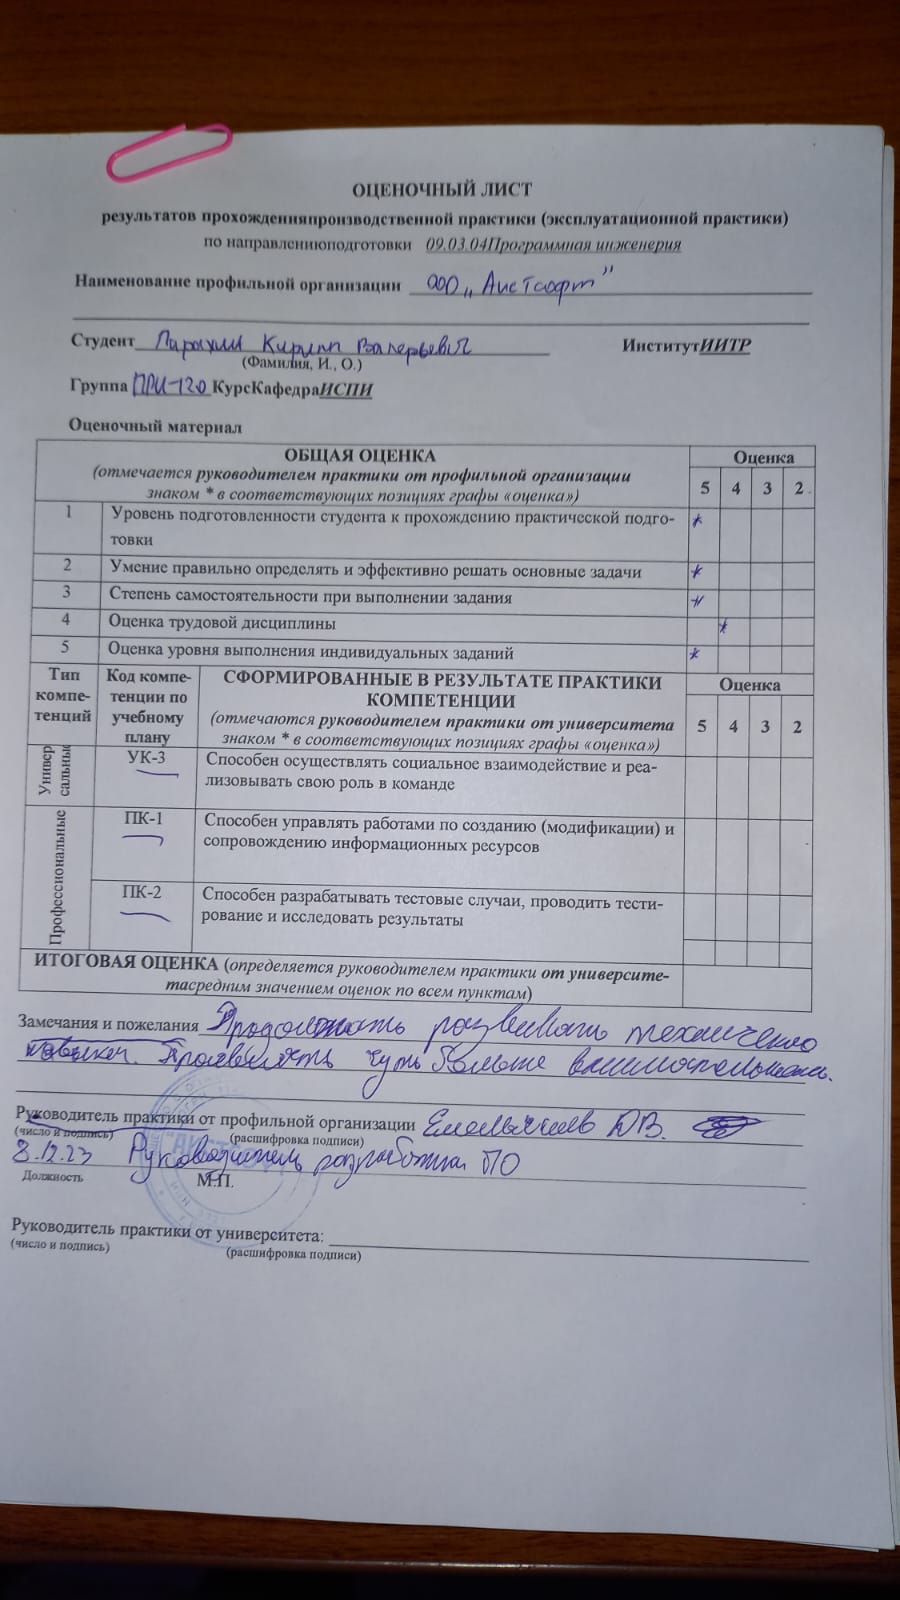 ОЦЕНОЧНЫЙ ЛИСТ
результатов прохожденияпроизводственной практики (эксплуатационной практики)
по направлениюподготовки 09.03.04Программная инженерия
Наименование профильной организации ООО „Аистсофт"
Студент Кирилл Валерьевич ИнститутИИТР
(Фамилия, И., О.)
Группа ПРИ-120 КурсКафедраИСПИ
Оценочный материал
ОБЩАЯ ОЦЕНКА Оценка
(отмечается руководителем практики от профильной организации
знаком * в соответствующих позициях графы «оценка») 5 4 3 2
1 Уровень подготовленности студента к прохождению практической подго- *
товки
2 Умение правильно определять и эффективно решать основные задачи *
3 Степень самостоятельности при выполнении задания *
4 Оценка трудовой дисциплины *
5 Оценка уровня выполнения индивидуальных заданий *
Тип компе-тенций
Код компе-тенции по учебному плану
СФОРМИРОВАННЫЕ В РЕЗУЛЬТАТЕ ПРАКТИКИ Оценка
КОМПЕТЕНЦИИ
(отмечаются руководителем практики от университета
знаком * в соответствующих позициях графы «оценка») 5 4 3 2
Универсальные
УК-3 Способен осуществлять социальное взаимодействие и реа-
лизовывать свою роль в команде
Профессиональные
ПК-1 Способен управлять работами по созданию (модификации) и
сопровождению информационных ресурсов
ПК-2 Способен разрабатывать тестовые случаи, проводить тести-
рование и исследовать результаты
ИТОГОВАЯ ОЦЕНКА (определяется руководителем практики от университе-
тасредним значением оценок по всем пунктам)
Замечания и пожелания Продолжать развивать
навыки. чуть больше
Руководитель практики от профильной организации ДВ.
(число и подпись) (расшифровка подписи)
8.12.23 Руководитель разработки ПО
Должность М.П.
Руководитель практики от университета:
(число и подпись) (расшифровка подписи)